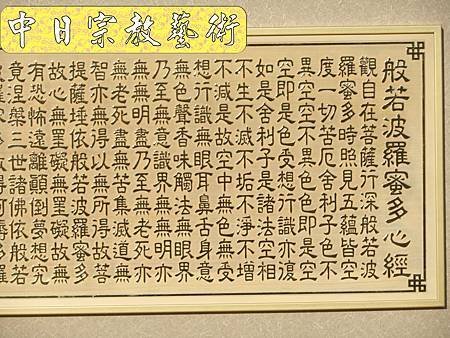 中日宗教藝術
般若波羅蜜多心經
觀自在菩薩行深般若波
羅蜜多時照見五蘊皆空
度一切苦厄舍利子色不
異空空不異色色即是空
空即是色受想行識亦復
如是舍利子是諸法空相
不生不滅不垢不淨不增
不減是故空中無色無受
想行識無眼耳鼻舌身意
無色聲香味觸法無眼界
乃至無意識界無無明亦
無無明盡乃至無老死亦
無老死盡無苦集滅道無
智亦無得以無所得故菩
提薩埵依般若波羅蜜多
故心無罣礙無罣礙故無
有恐怖遠離顛倒夢想究
竟涅槃三世諸佛依般若